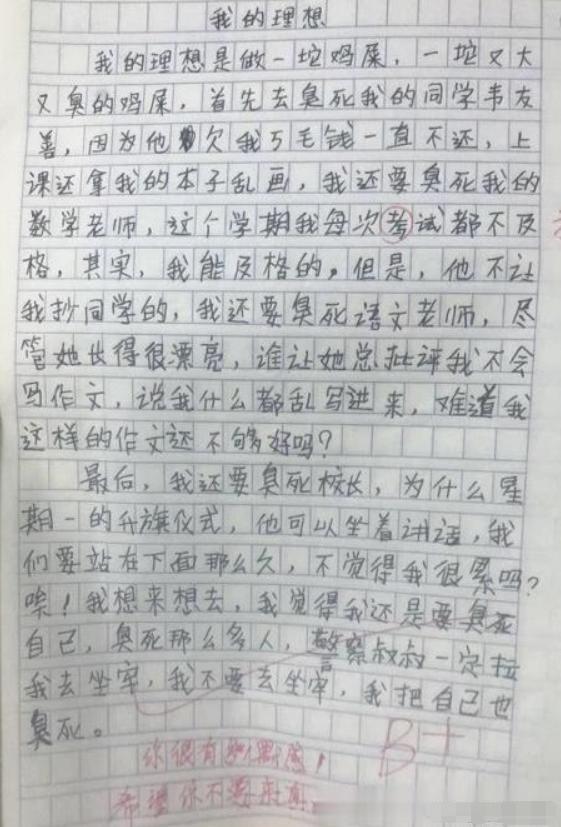 我的理想
我的理想是做一坨鸡屎，一坨又大
又臭的鸡屎，首先去臭死我的同学韦友
善，因为他欠我5毛钱一直不还，上
课还拿我的本子乱画，我还要臭死我的
数学老师，这个学期我每次考试都不及
格，其实，我能及格的，但是，他不让
我抄同学的，我还要臭死语文老师，尽
管她长得很漂亮，谁让她总批评我不会
写作文，说我什么都乱写进来，难道我
这样的作文还不够好吗？
最后，我还要臭死校长，为什么星
期一的升旗仪式，他可以坐着讲话，我
们要站在下面那么久，不觉得我很累吗？
唉！我想来想去，我觉得我还是要臭死
自己，臭死那么多人，警察叔叔一定拉
我去坐牢，我不要去坐牢，我把自己也
臭死。
B+
你很有幽默感！
希望你不要来真